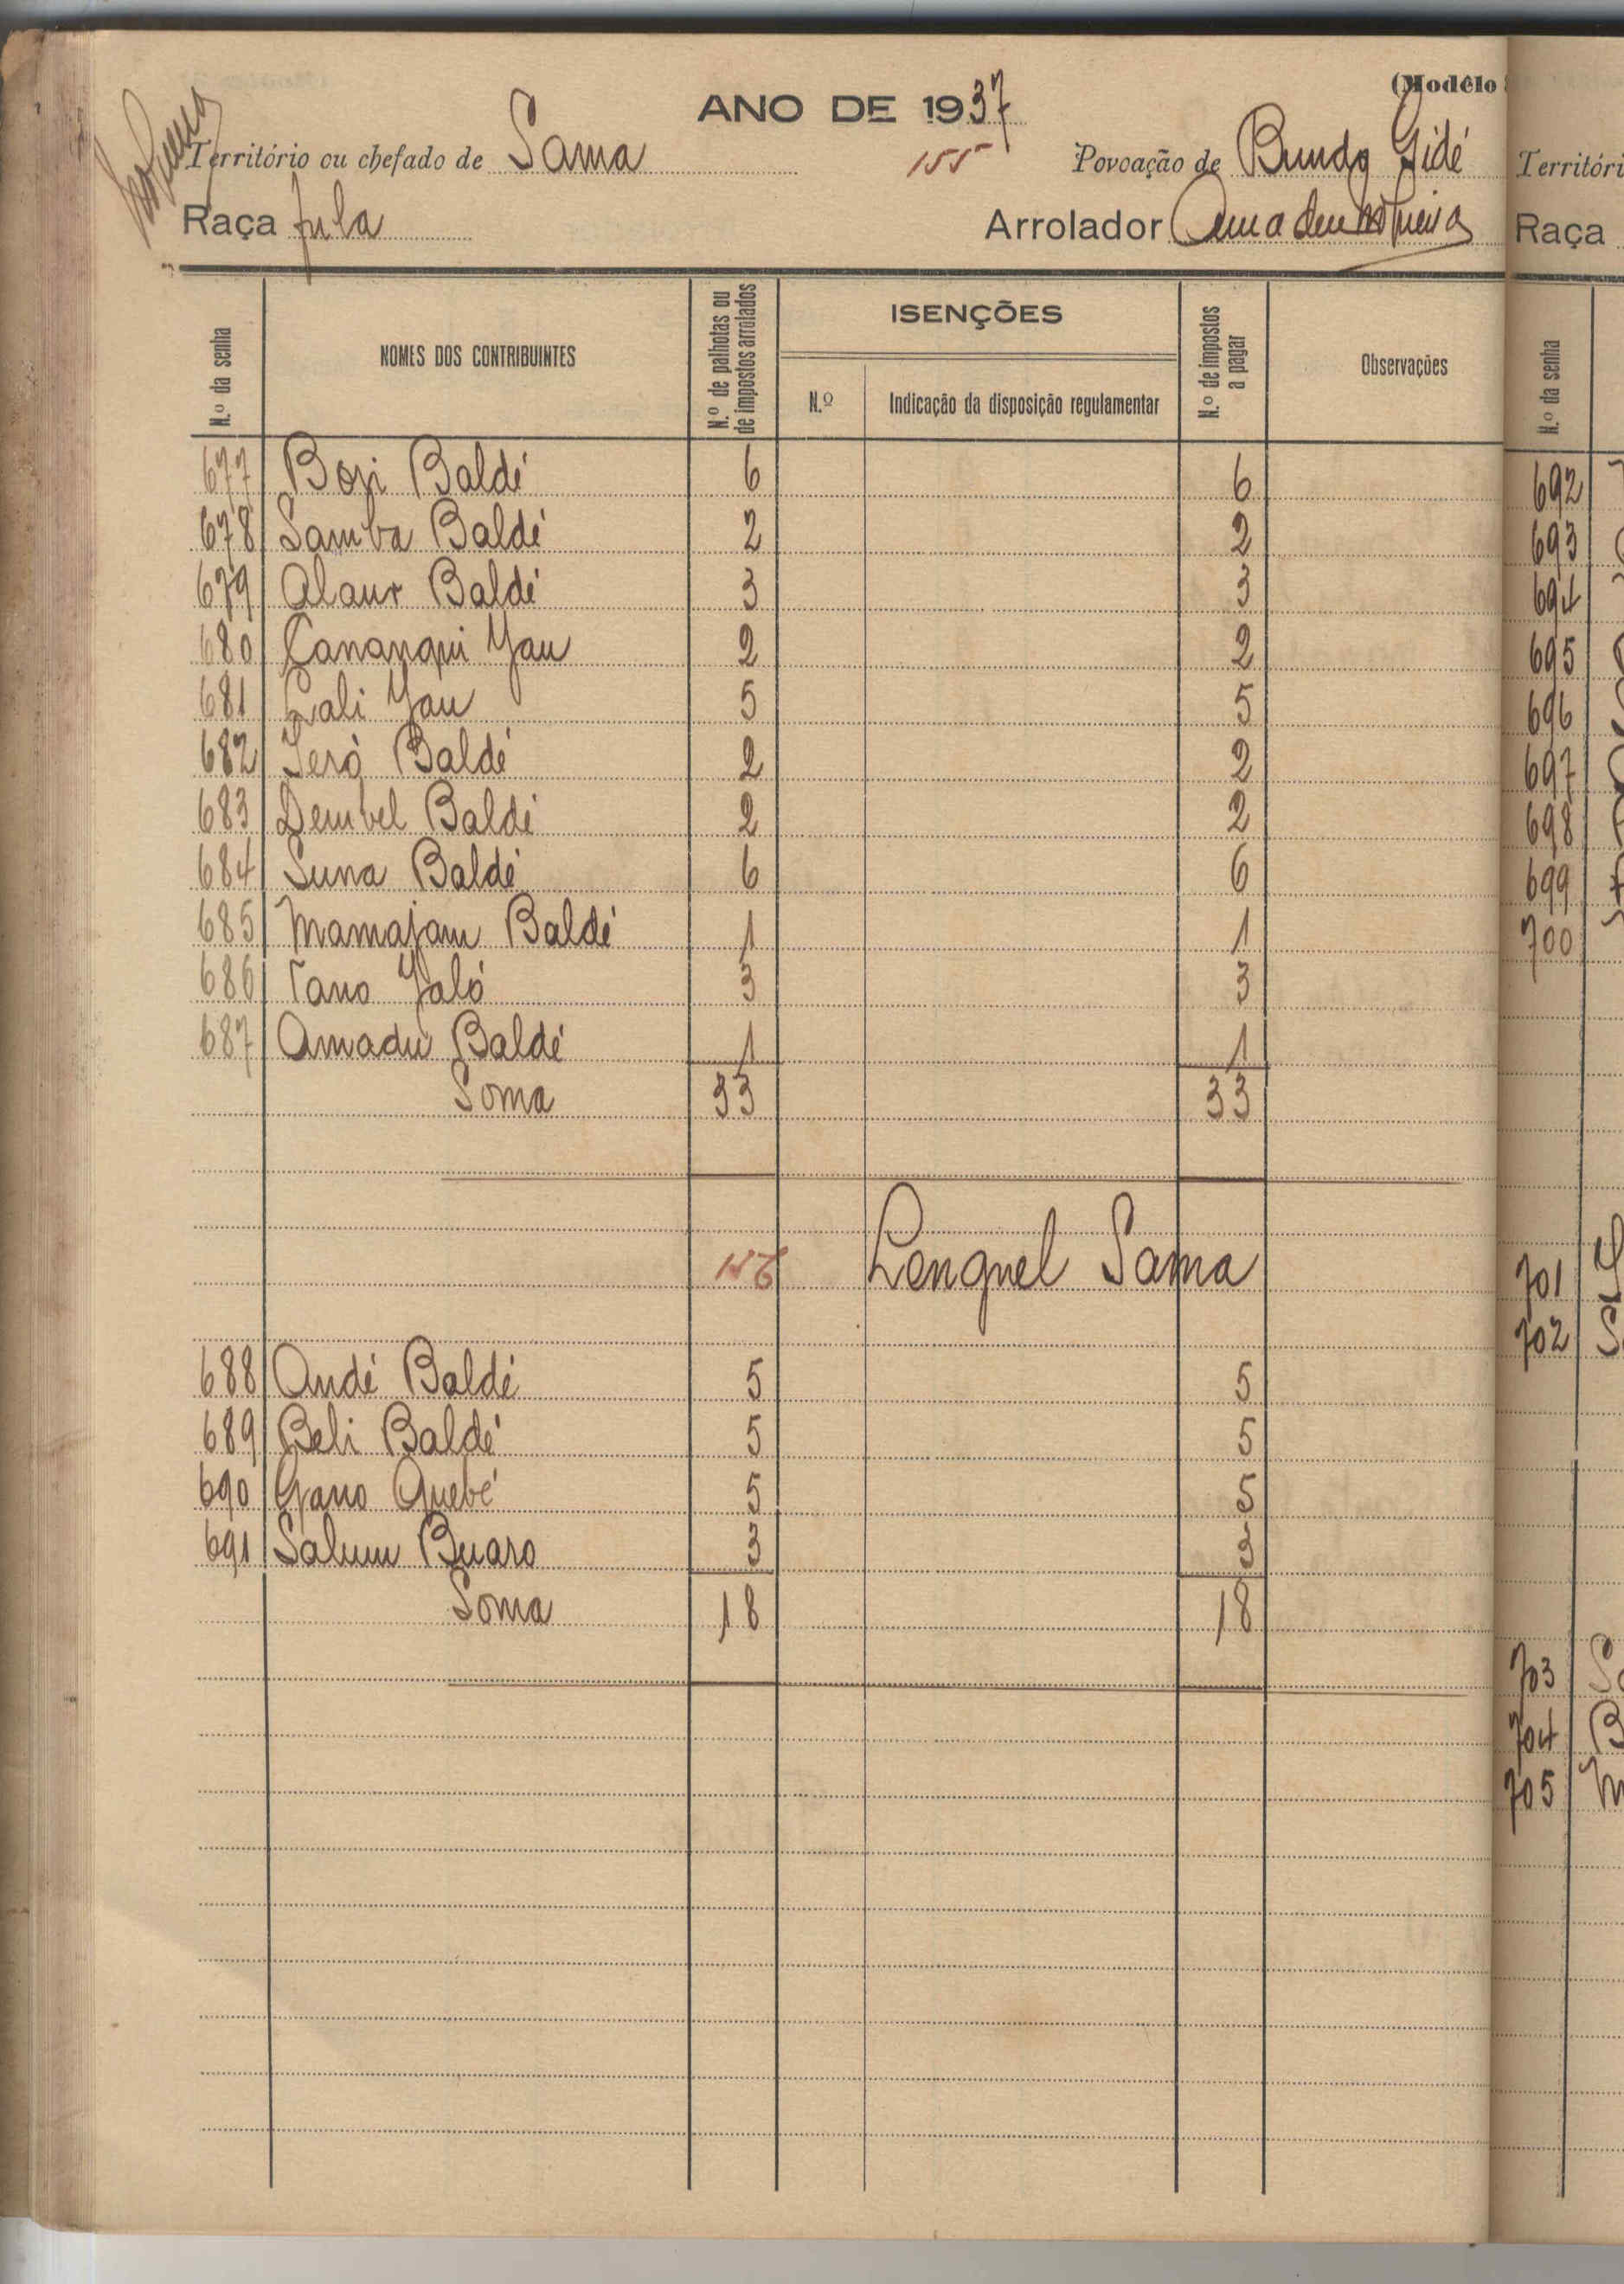 (Modêlo
ANO DE 1937
Território ou chefado de Sama 155 Povoação de Bundo Gidé
Raça fula Arrolador
N.º da senha
NOMES DOS CONTRIBUINTES
N.º de palhotas ou de impostos arrolados
ISENÇÕES
N.º
Indicação da disposição regulamentar
N.º de impostos a pagar
Observações
677 Bori Baldé 6 6
678 Samba Baldé 2 2
679 Baldé 3 3
680 Jau 2 2
681 Jau 5 5
682 Baldé 2 2
683 Dembel Baldé 2 2
684 Suna Baldé 6 6
685 Mamajam Baldé 1 1
686 Tano Jaló 3 3
687 Amadú Baldé 1 1
Soma 33 33
156 Lenguel Sama
688 Andé Baldé 5 5
689 Beli Baldé 5 5
690 Gano Quebé 5 5
691 Salum Buaro 3 3
Soma 18 18
Territóri
Raça
N.º da senha
692
693
694
695
696
697
698
699
700
701
702
703
704
705